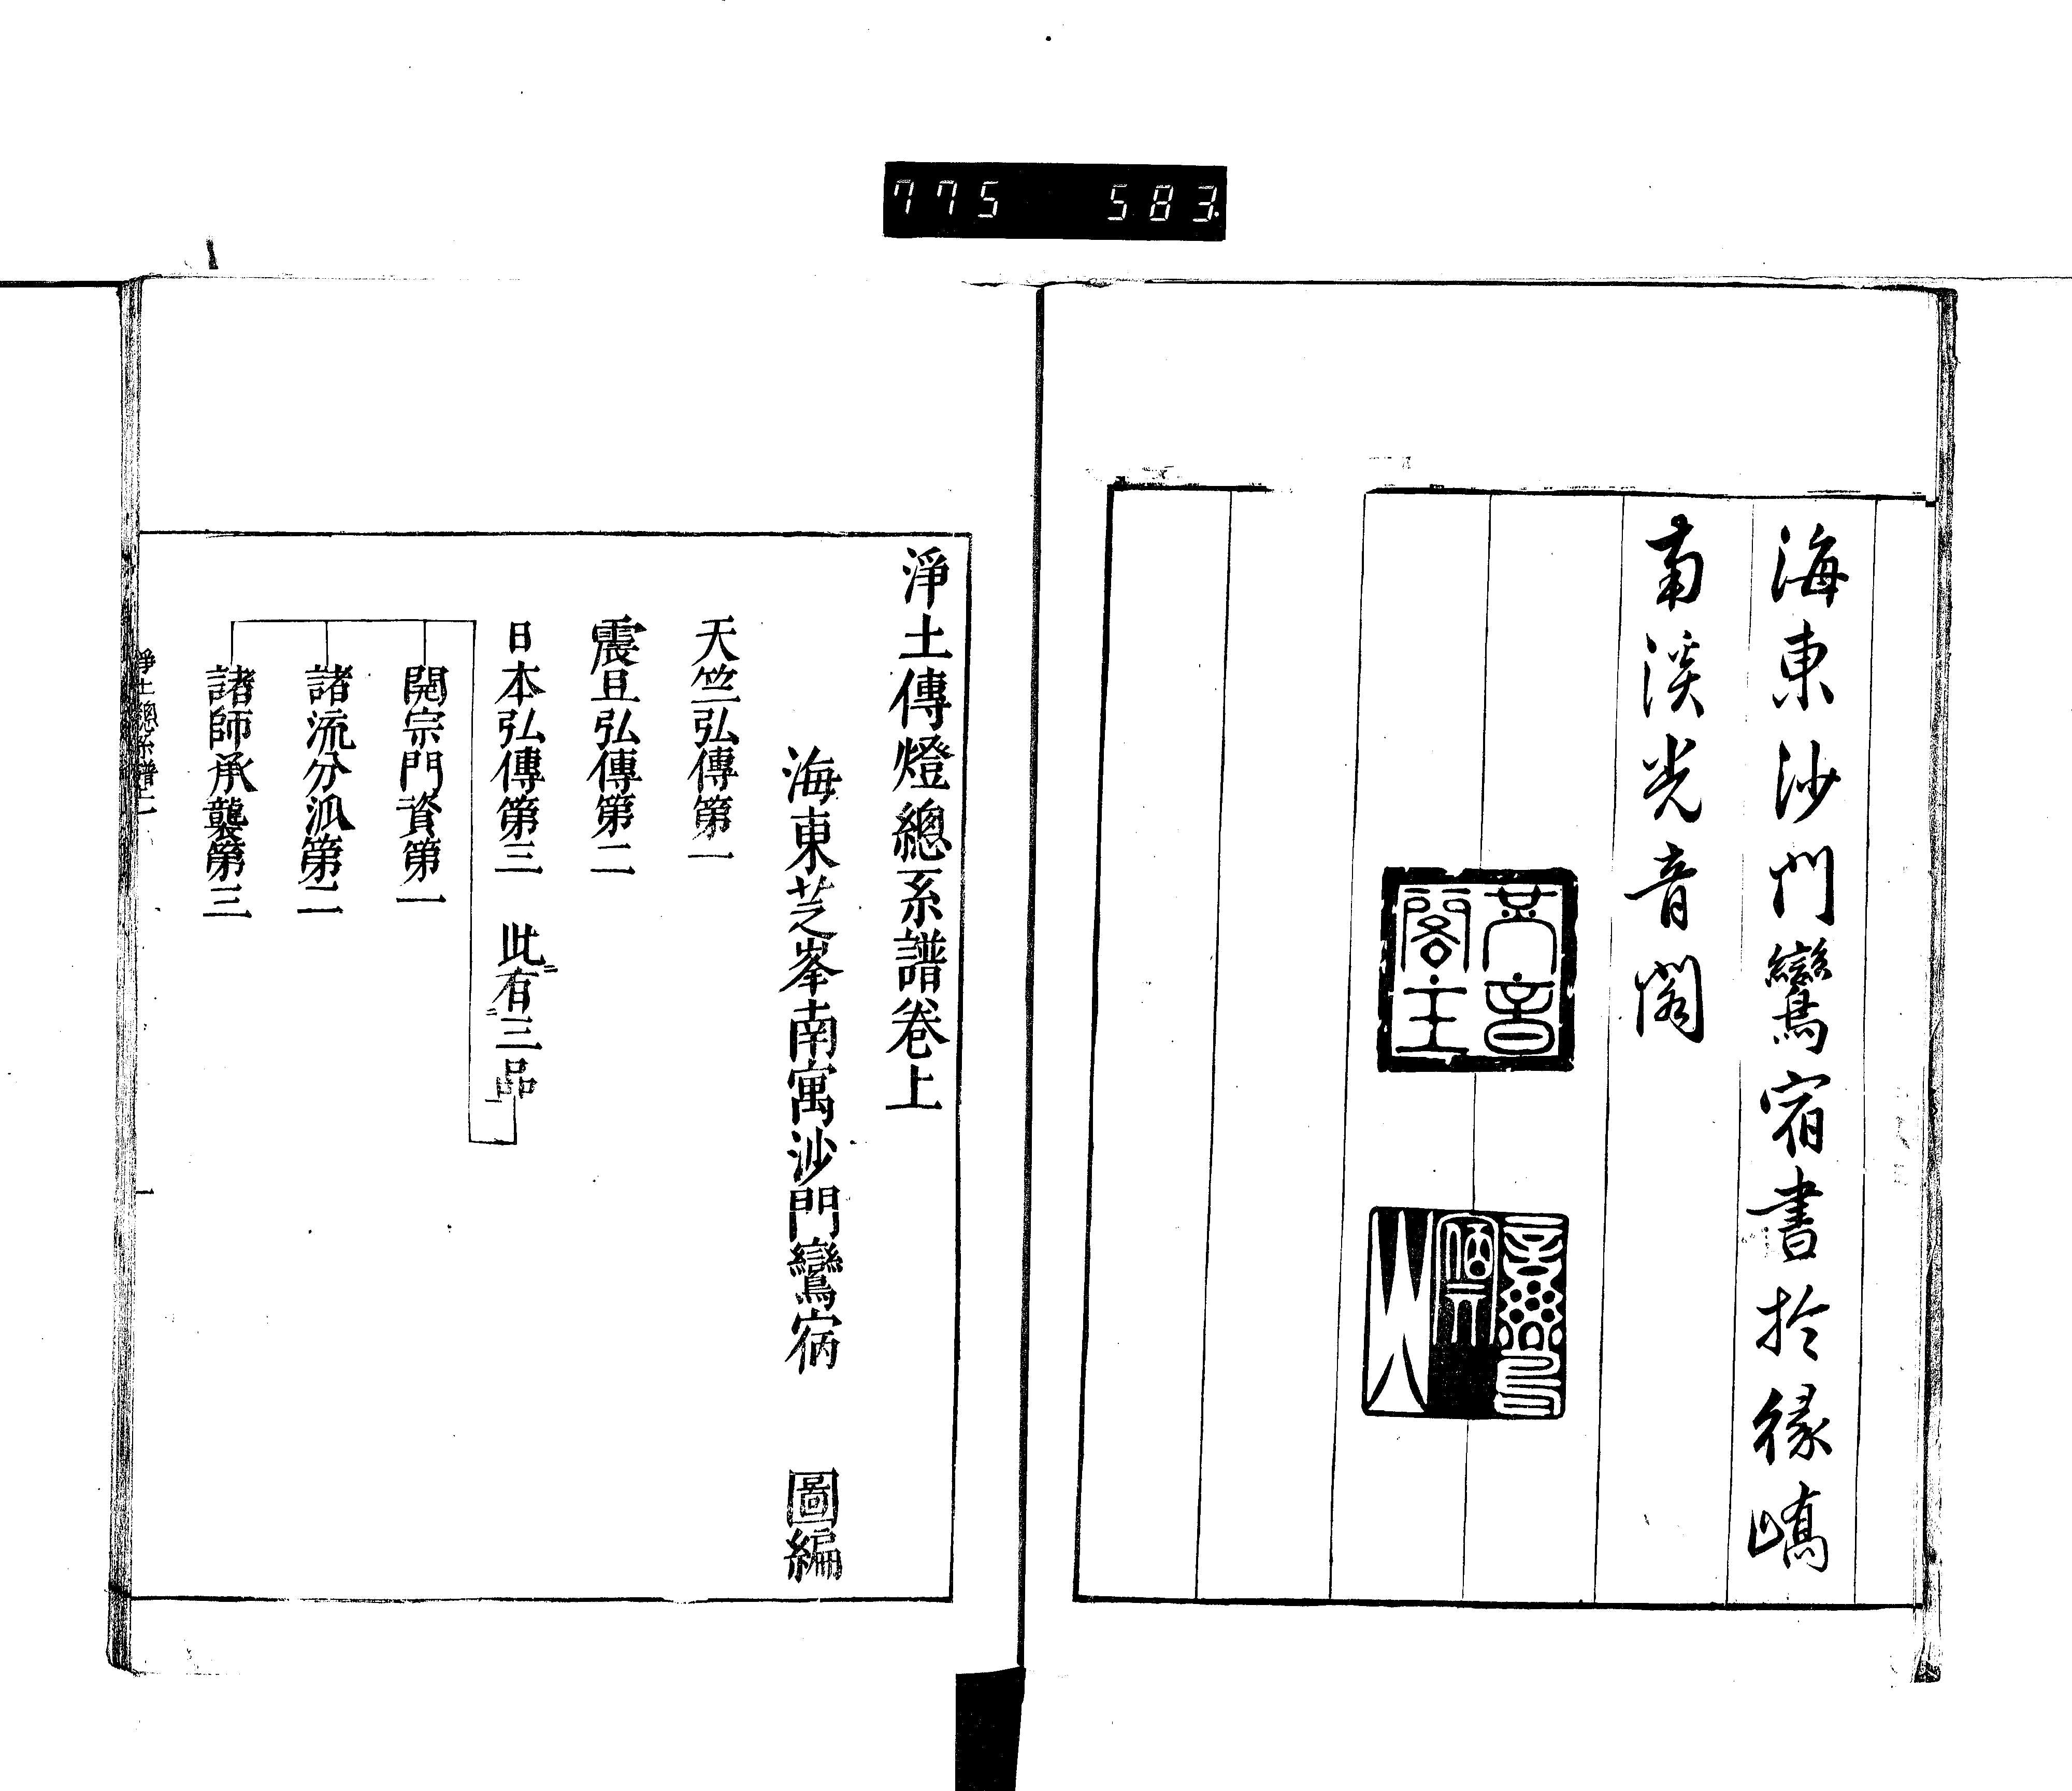 775 583
海東沙門鸞宿書於緣嶠
南溪光音閣
光音
閣主
淨土傳燈總系譜卷上
海東芝峯南寓沙門鸞宿 圖編
天竺弘傳第一
震旦弘傳第二
日本弘傳第三 此有三品
開宗門資第一
諸流分派第二
諸師承襲第三
淨土總系譜上 一